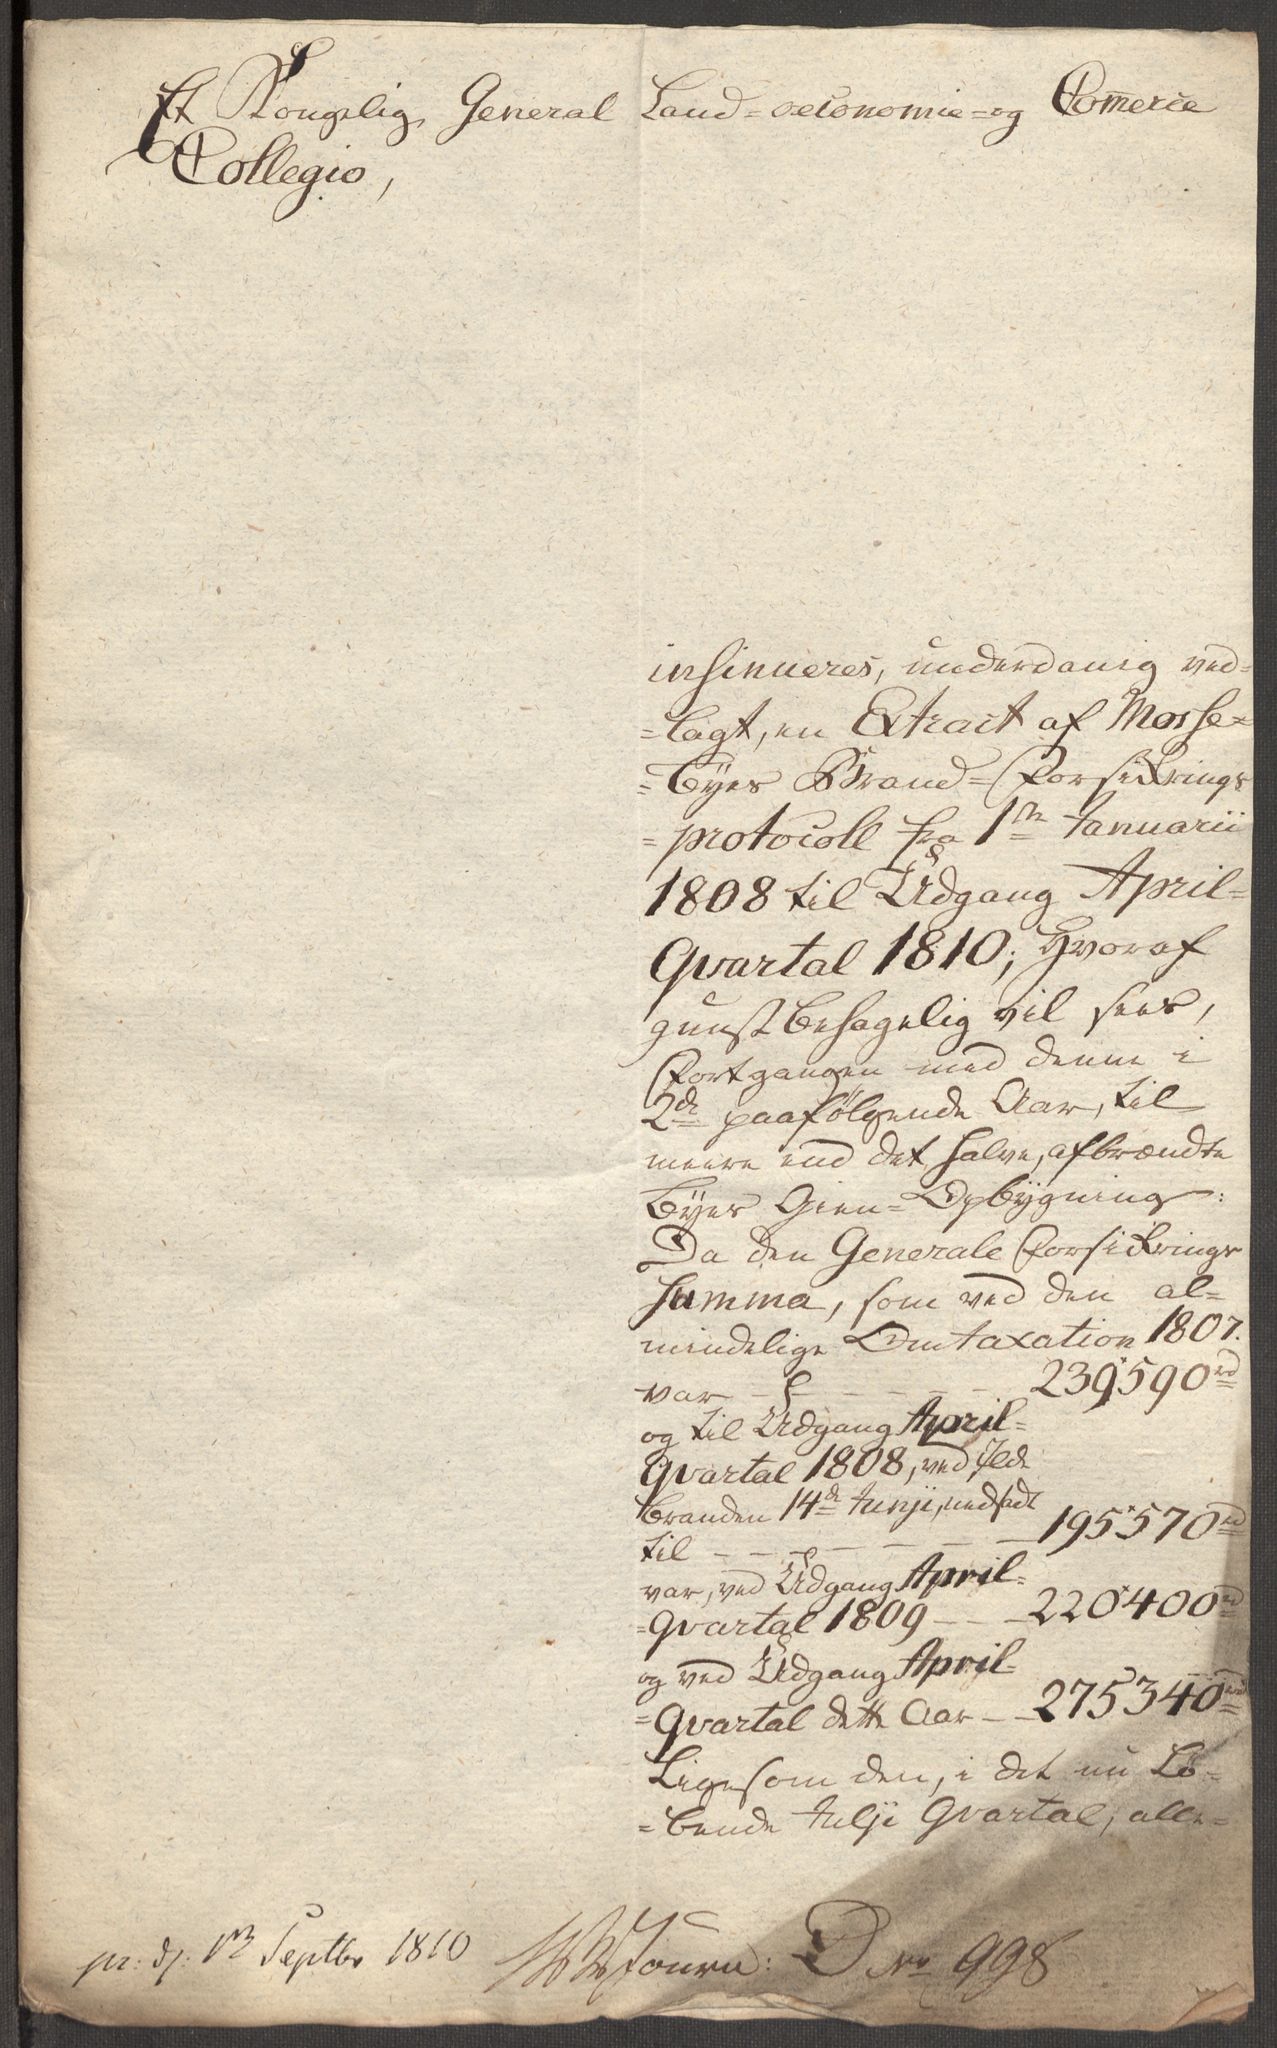 Et Kongelig General Land-oeconomie-og Comerce
Collegio,
insinueres, underdanig ved-
-lagt, en Extract af Mosse-
-Byes Brand-Forsikrings
-protocoll fra 1ste Januarii
1808 til Udgang April-
Qvartal 1810; Hvoraf
gunstbehagelig vil sees,
Fortgangen med denne i
2de paafølgende Aar, til
meere end det halve, afbrændte
Byes Gien-Opbygning:
Da den Generale Forsikrings
Summa, som ved den al-
mindelige Omtaxation 1807.
var - - - - - 239590rd
og til Udgang April-
Qvartal 1808, ved Ilde
branden 14de Junji, nedsadt
til - - - - - - 195570rd
var, ved Udgang April-
-Qvartal 1809 - - - 220400rd
og ved Udgang April-
-Qvartal dette Aar - - 275340rd
Ligesom den, i det nu Lø-
-bende Julji Qvartal, alle-
pr: d: 1ste Septbr 1810 Journ: D No 998